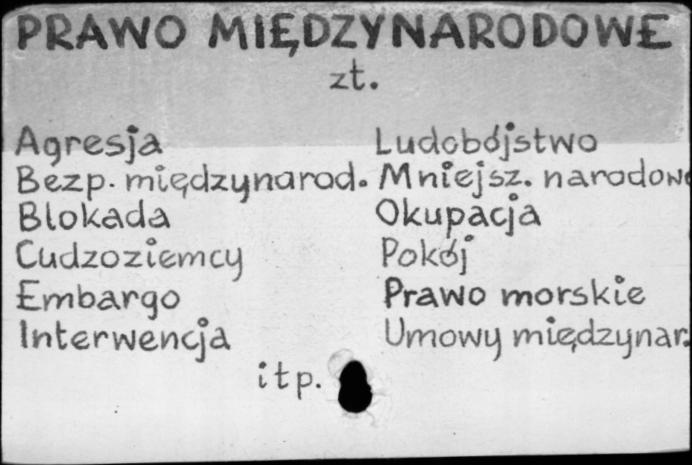 PRAWO MIĘDZYNARODOWE
zt.
Agresja
Bezp. międzynarod.
Blokada
Cudzoziemcy
Embargo
Interwencja
Ludobójstwo
Mniejsz. narodowe
Okupacja
Pokój
Prawo morskie
Umowy międzynar.
itp.